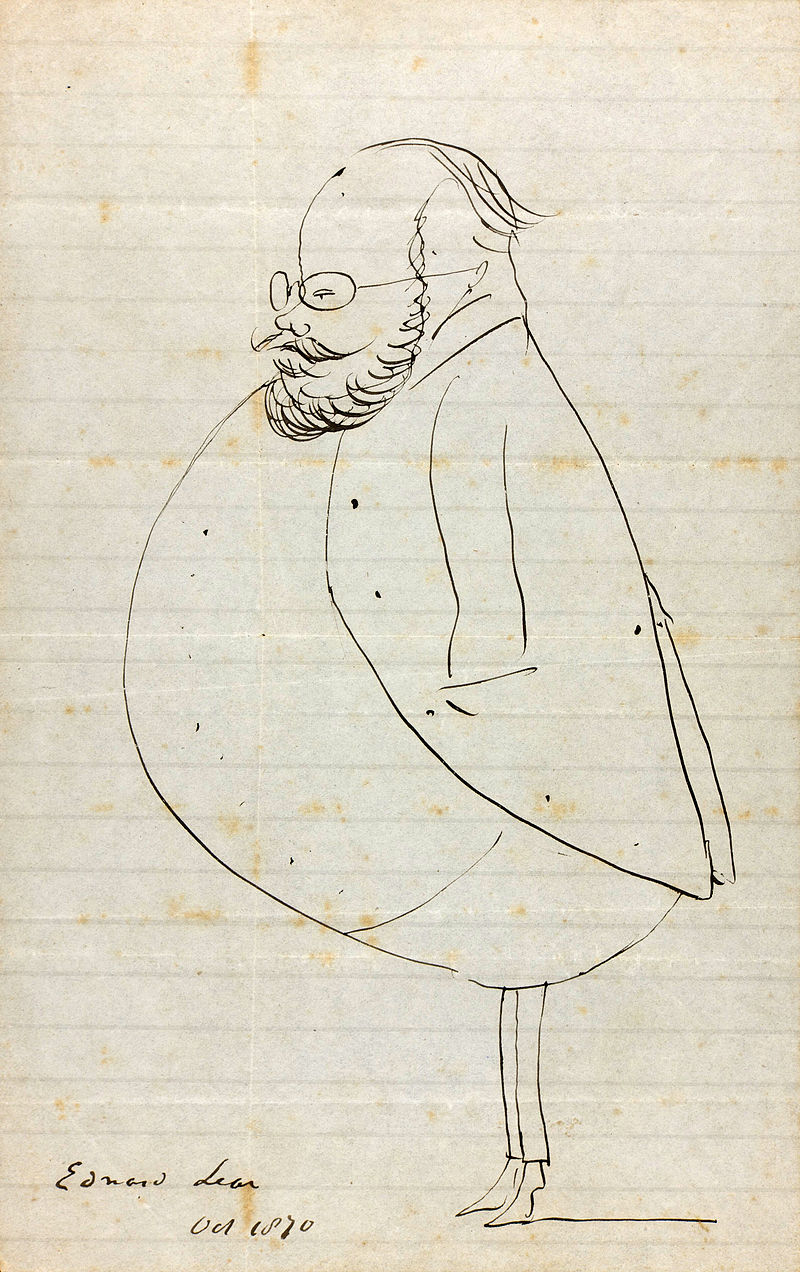 Edward Lear
Oct 1870